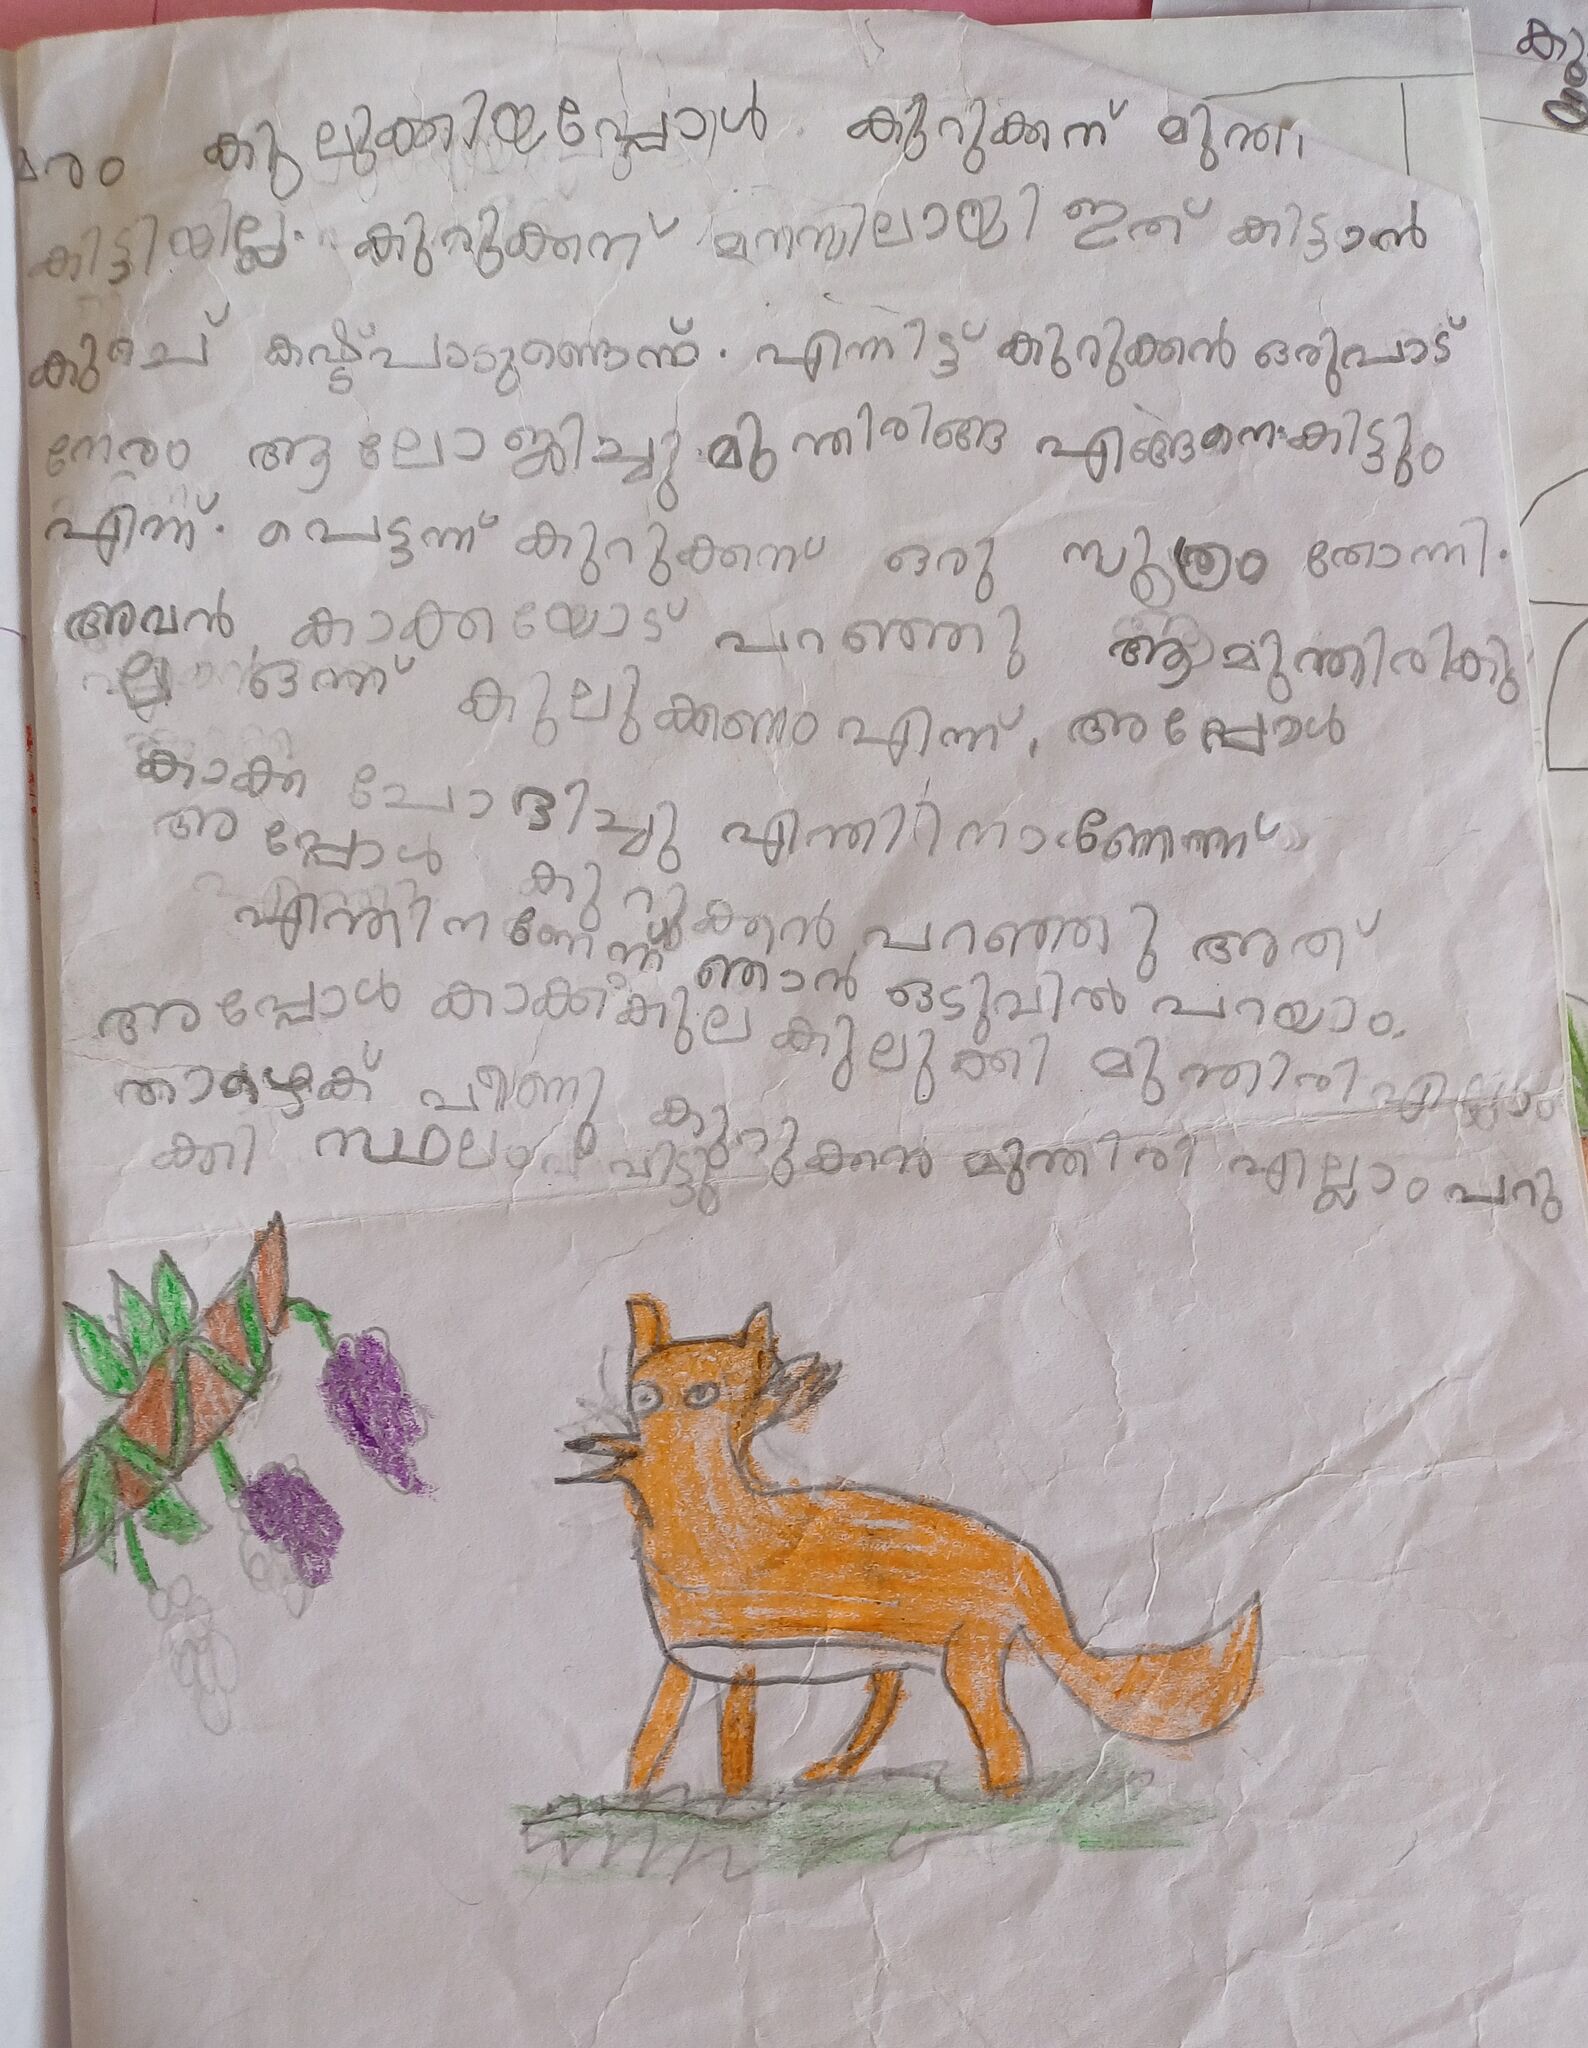 മരം കുലുക്കിയപ്പോൾ. കുറുക്കന് മുന്തി
കിട്ടിയില്ല. കുറുക്കന് മനസ്സിലായി ഇത് കിട്ടാൻ
കുറച് കഷ്ട്പാടുണ്ടെന്ന്. എന്നിട്ട് കുറുക്കൻ ഒരുപാട്
നേരം ആലോജിച്ചു മുന്തിരിങ്ങ എങ്ങനെ കിട്ടും
എന്ന്. പെട്ടന്ന് കുറുക്കന് ഒരു സൂത്രം തോന്നി.
അവൻ കാക്കയോട് പറഞ്ഞു ആ മുന്തിരികു
ല ഒന്ന് കുലുക്കണം എന്ന്. അപ്പോൾ
കാക്ക ചോദിച്ചു എന്തിനാണേന്ന്
അപ്പോൾ കുറുക്കൻ പറഞ്ഞു അത്
എന്തിനണേന്ന് ഞാൻ ഒടുവിൽ പറയാം.
അപ്പോൾ കാക്ക കുല കുലുക്കി മുന്തിരി എല്ലാം
താഴെക് വീണു കുറുക്കൻ മുന്തിരി എല്ലാം പറു
ക്കി സ്ഥലം വിട്ടു